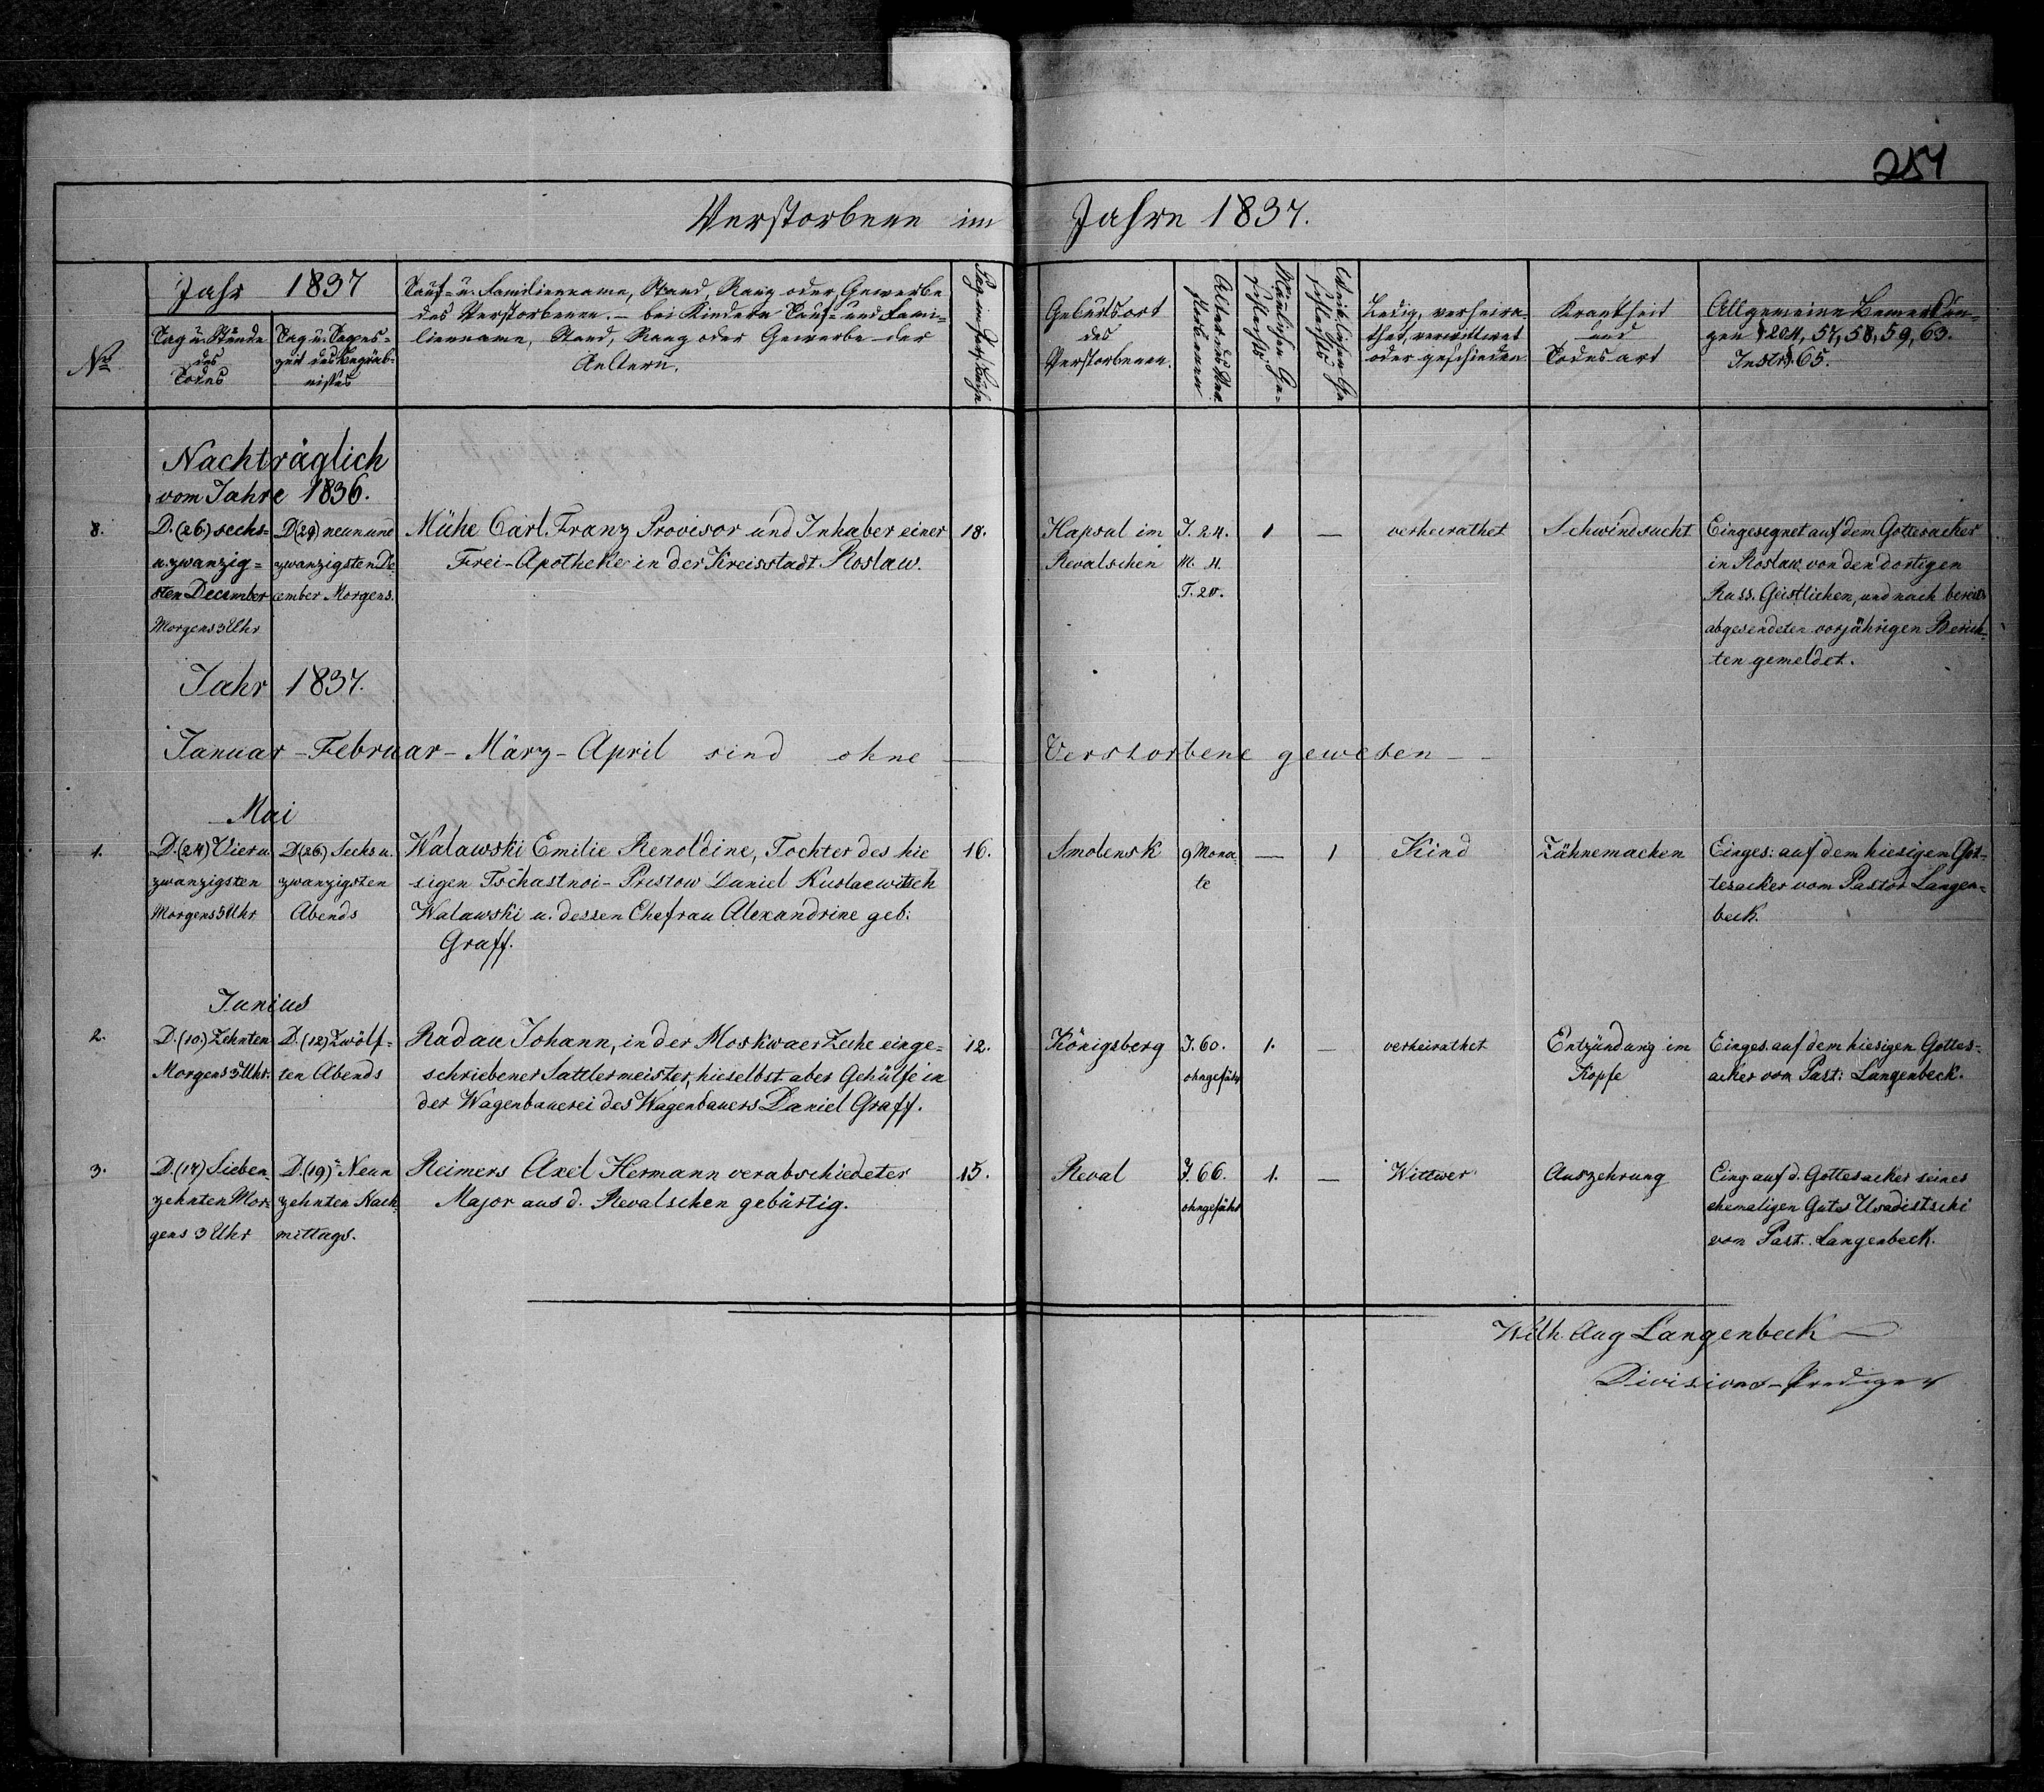 257
Verstorbene im Jahre 1837.
No
Jahr 1837
Tag u. Stunde
des
Todes
Tag u. Tages=
zeit des Begräb-
nisses
Tauf= u. Familienname, Stand, Rang oder Gewerbe
des Verstorbenen. — bei Kindern Tauf= und Fami-
lienname, Stand, Rang oder Gewerbe der
Aeltern.
Pag. im
Geburtsort
des
Verstorbenen.
Alter des Ver-
storbenen
Männlichen Ge-
schlechts
Weiblichen Ge
schlechts
Ledig, verheira-
thet, verwittwet
oder geschieden
Krankheit
und
Todesart
Allgemeine Bemerkun-
gen § 204, 57, 58, 59, 63.
Instr. § 65.
Nachträglich
vom Jahre 1836.
8.
D. (26) sechs=
u. zwanzig=
sten December
Morgens 3 Uhr
D (29) neun und
zwanzigsten De
cember Morgens.
Mühe Carl Franz Provisor und Inhaber einer
Frei-Apotheke in der Kreisstadt Roslaw.
18.
Hapsal im
Revalschen
J. 24.
M. 4.
T. 20.
1
—
verheirathet
Schwindsucht
Eingesegnet auf dem Gottesacker
in Roslaw von den dortigen
Russ. Geistlichen, und nach bereits
abgesendeten vorjährigen Berich-
ten gemeldet.
Jahr 1837.
Januar - Februar - März - April sind ohne — Verstorbene gewesen —
Mai
1.
D. (24) Vier u.
zwanzigsten
Morgens 5 Uhr
D (26) Sechs u.
zwanzigsten
Abends
Walawski Emilie Renoldine, Tochter des hie
sigen Tschastnoi - Pristow Daniel Kuslaewitsch
Walawski u. dessen Ehefrau Alexandrine geb:
Graff.
16.
Smolensk
9 Mona
te
—
1
Kind
Zähnemachen
Einges: auf dem hiesigen Got-
tesacker vom Pastor Langen=
beck.
Junius
2.
D. (10.) Zehnten
Morgens 3 Uhr.
D. (12) Zwölf=
ten Abends
Radau Johann, in der Moskwaer Zeche einge=
schriebener Sattlermeister, hieselbst aber Gehülfe in
der Wagenbauerei des Wagenbauers Daniel Graff.
12.
Königsberg
J. 60.
ohngefähr
1.
—
verheirathet
Entzündung im
Kopfe
Einges. auf dem hiesigen Gottes-
acker vom Past: Langenbeck.
3.
D. (17) Sieben
zehnten Mor:
gens 3 Uhr
D. (19) Neun
zehnten Nach:
mittags.
Reimers Axel Hermann verabschiedeter
Major aus d. Revalschen gebürtig.
15.
Reval
J. 66.
ohngefähr
1.
—
Wittwer
Auszehrung
Eing. auf d. Gottesacker seines
ehemaligen Gutes
vom Past. Langenbeck.
Wilh. Aug Langenbeck
Divisions-Prediger